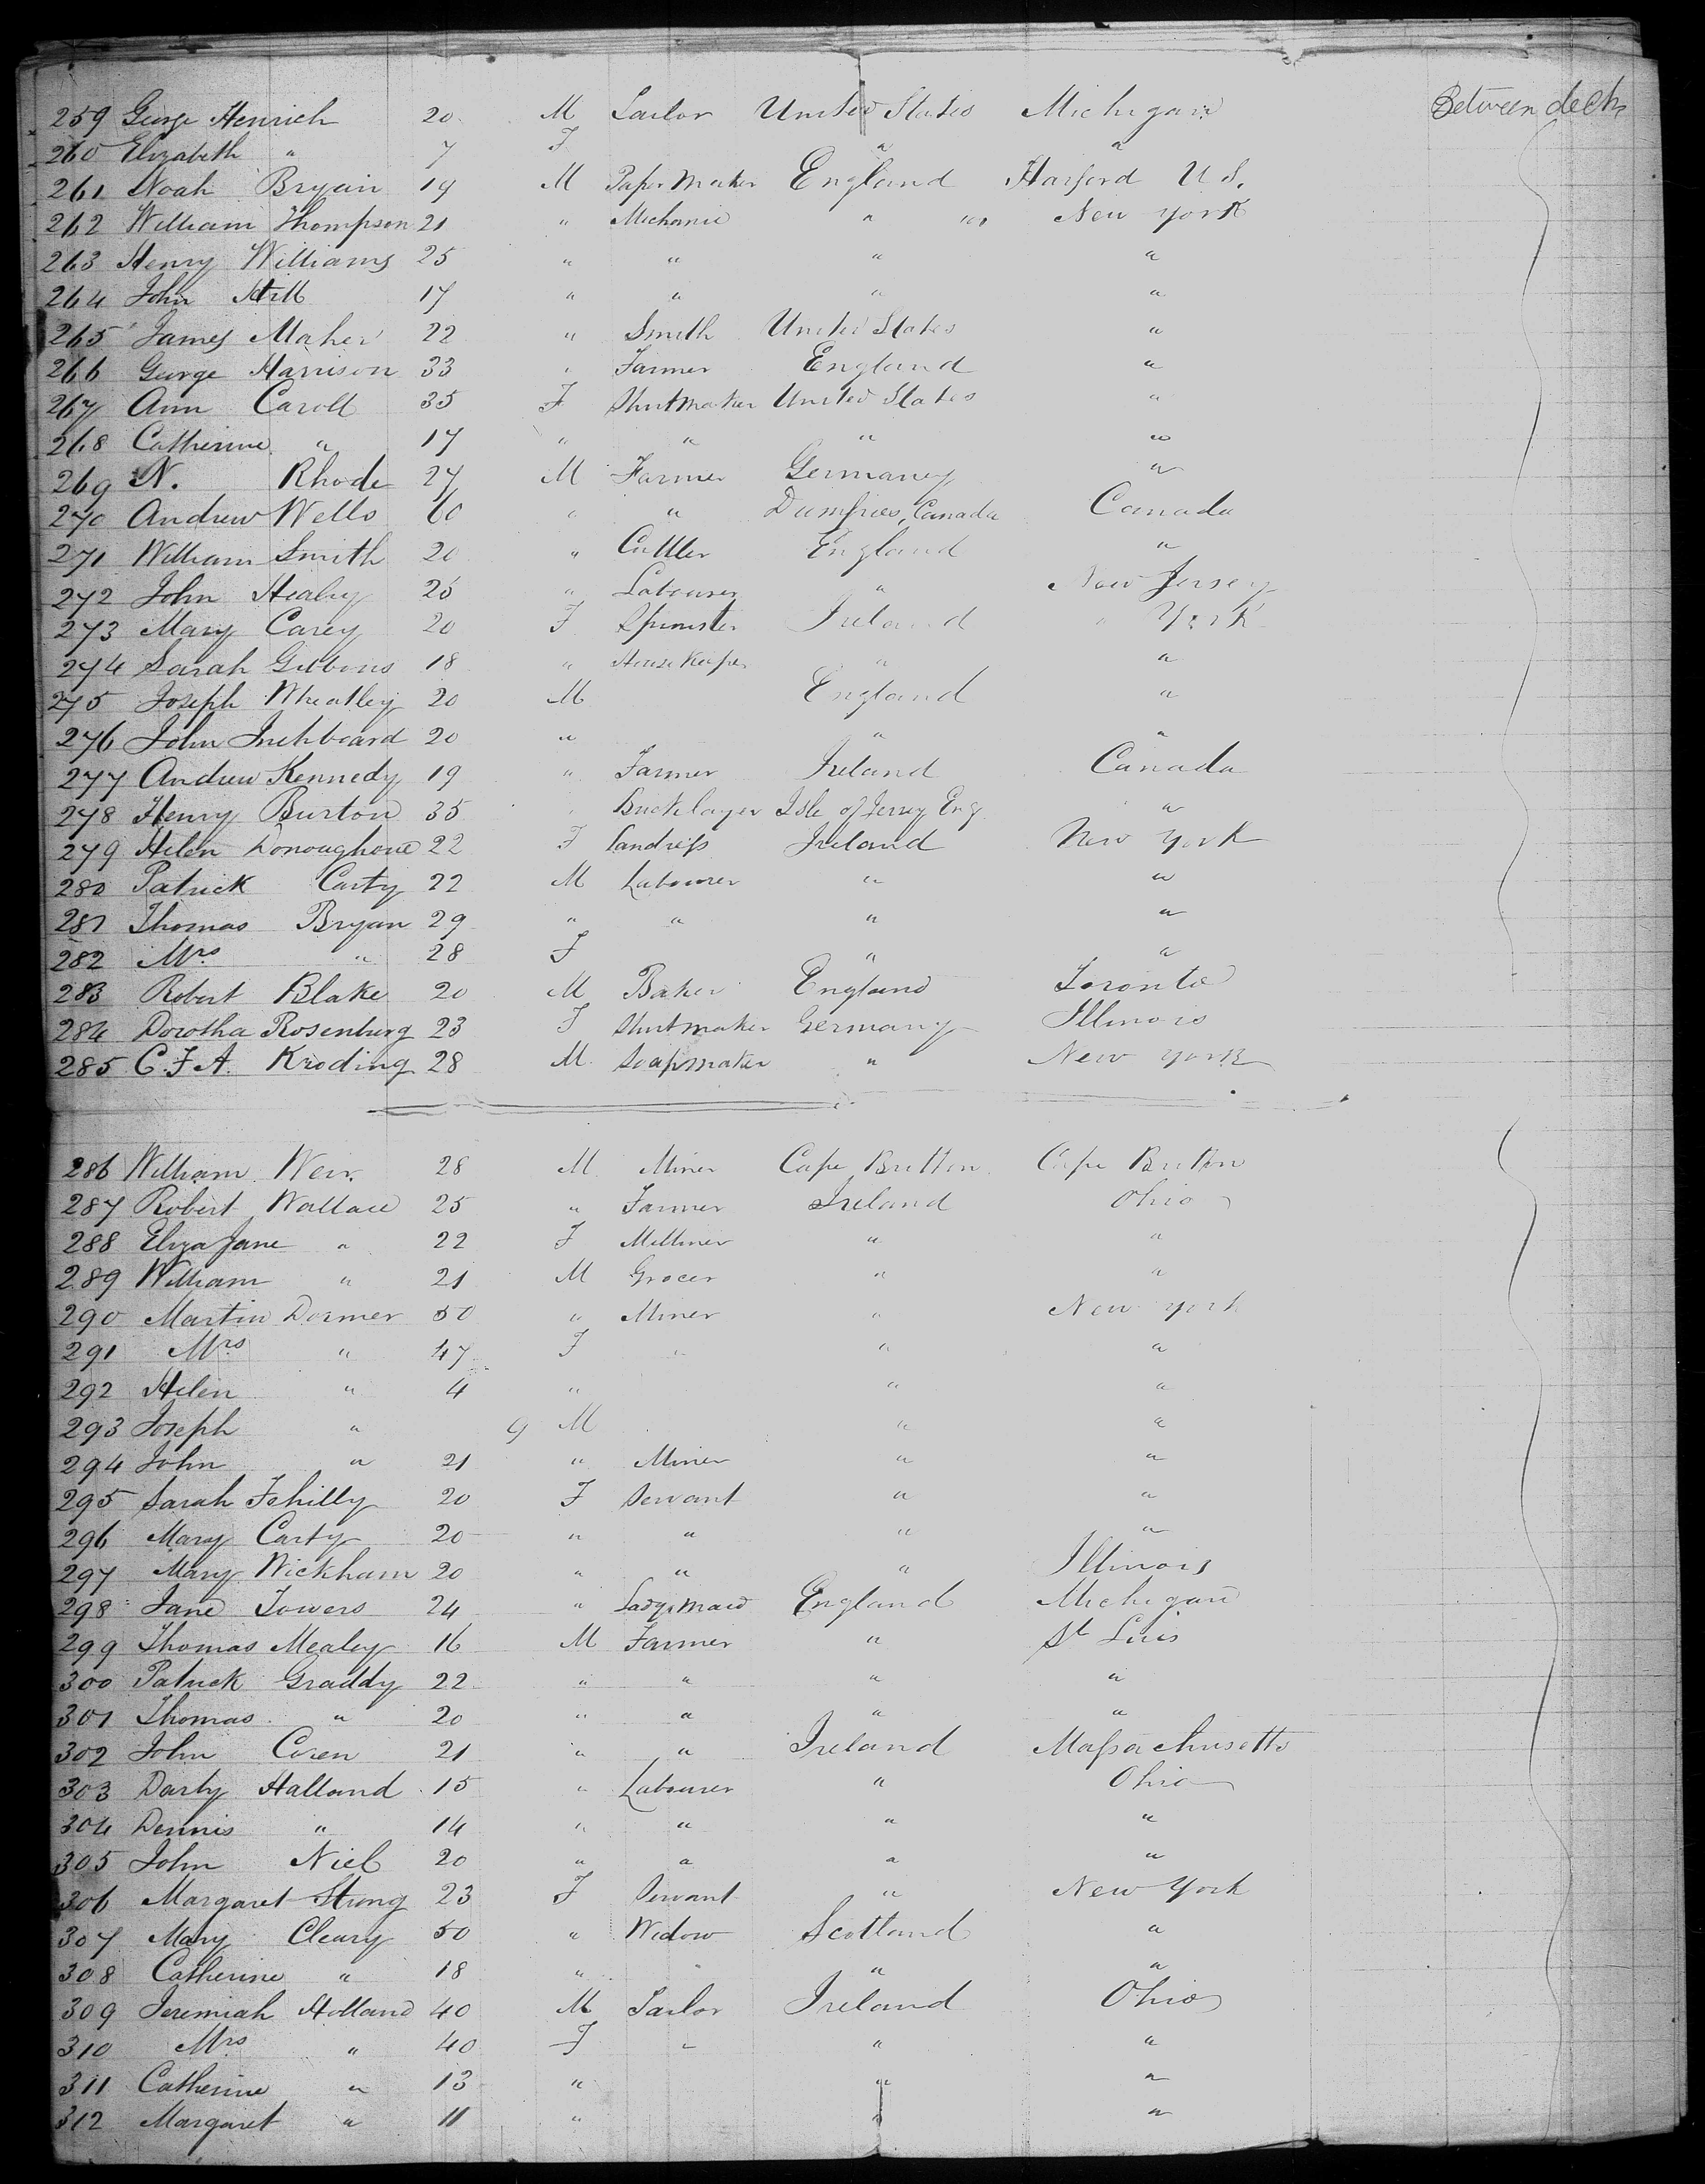 259 George Henrich 20 M Tailor United States Michigan Between decks
260 Elizabeth " 7 F " "
261 Noah Bryain 19 M Paper Maker England Harford U S.
262 William Thompson 21 " Mechanic " " New York
263 Henry Williams 25 " " " "
264 John Hill 17 " " " "
265 James Maher 22 " Smith United States "
266 George Harrison 33 " Farmer England "
267 Ann Caroll 35 F Shirtmaker United States "
268 Catherine " 17 " " " "
269 N. Rhode 27 M Farmer Germany "
270 Andrew Wells 60 " " Dumfries, Canada Canada
271 William Smith 20 " Cuttler England "
272 John Healey 25 " Labourer " New Jersey
273 Mary Carey 20 F Spinster Ireland " York
274 Sarah Gibbons 18 " House Keeper " "
275 Joseph Wheatley 20 M England "
276 John Inchboard 20 " " "
277 Andrew Kennedy 19 " Farmer Ireland Canada
278 Henry Burton 35 " Bricklayer Isle of Jersey Eng "
279 Helen Donoughoue 22 F Landress Ireland New York
280 Patrick Carty 22 M Labourer " "
281 Thomas Bryan 29 " " " "
282 Mrs " 28 F " "
283 Robert Blake 20 M Baker England Toronto
284 Dorotha Rosenburg 23 F Shirtmaker Germany Illinois
285 C. F. A. Kroding 28 M Soapmaker " New York
286 William Weir. 28 M Miner Cape Britton Cape Britton
287 Robert Wallace 25 " Farmer Ireland Ohio
288 Eliza Jane " 22 F Milliner " "
289 William " 21 M Grocer " "
290 Martin Dormer 50 " Miner " New York
291 Mrs " 47 F " " "
292 Helen " 4 " " "
293 Joseph " 9 M " "
294 John " 21 " Miner " "
295 Sarah Fehilly 20 F Servant " "
296 Mary Carty 20 " " " "
297 Mary Wickham 20 " " " Illinois
298 Jane Towers 24 " Ladys Maid England Michigan
299 Thomas Mealey 16 M Farmer " St Luis
300 Patrick Graddy 22 " " " "
301 Thomas " 20 " " " "
302 John Coren 21 " " Ireland Massachusetts
303 Darby Halland 15 " Labourer " Ohio
304 Dennis " 14 " " " "
305 John Niel 20 " " " "
306 Margaret Strong 23 F Servant " New York
307 Mary Cleary 50 " Widow Scotland "
308 Catherine " 18 " " " "
309 Jeremiah Holland 40 M Tailor Ireland Ohio
310 Mrs " 40 F " " "
311 Catherine " 13 " " "
312 Margaret " 11 " " "